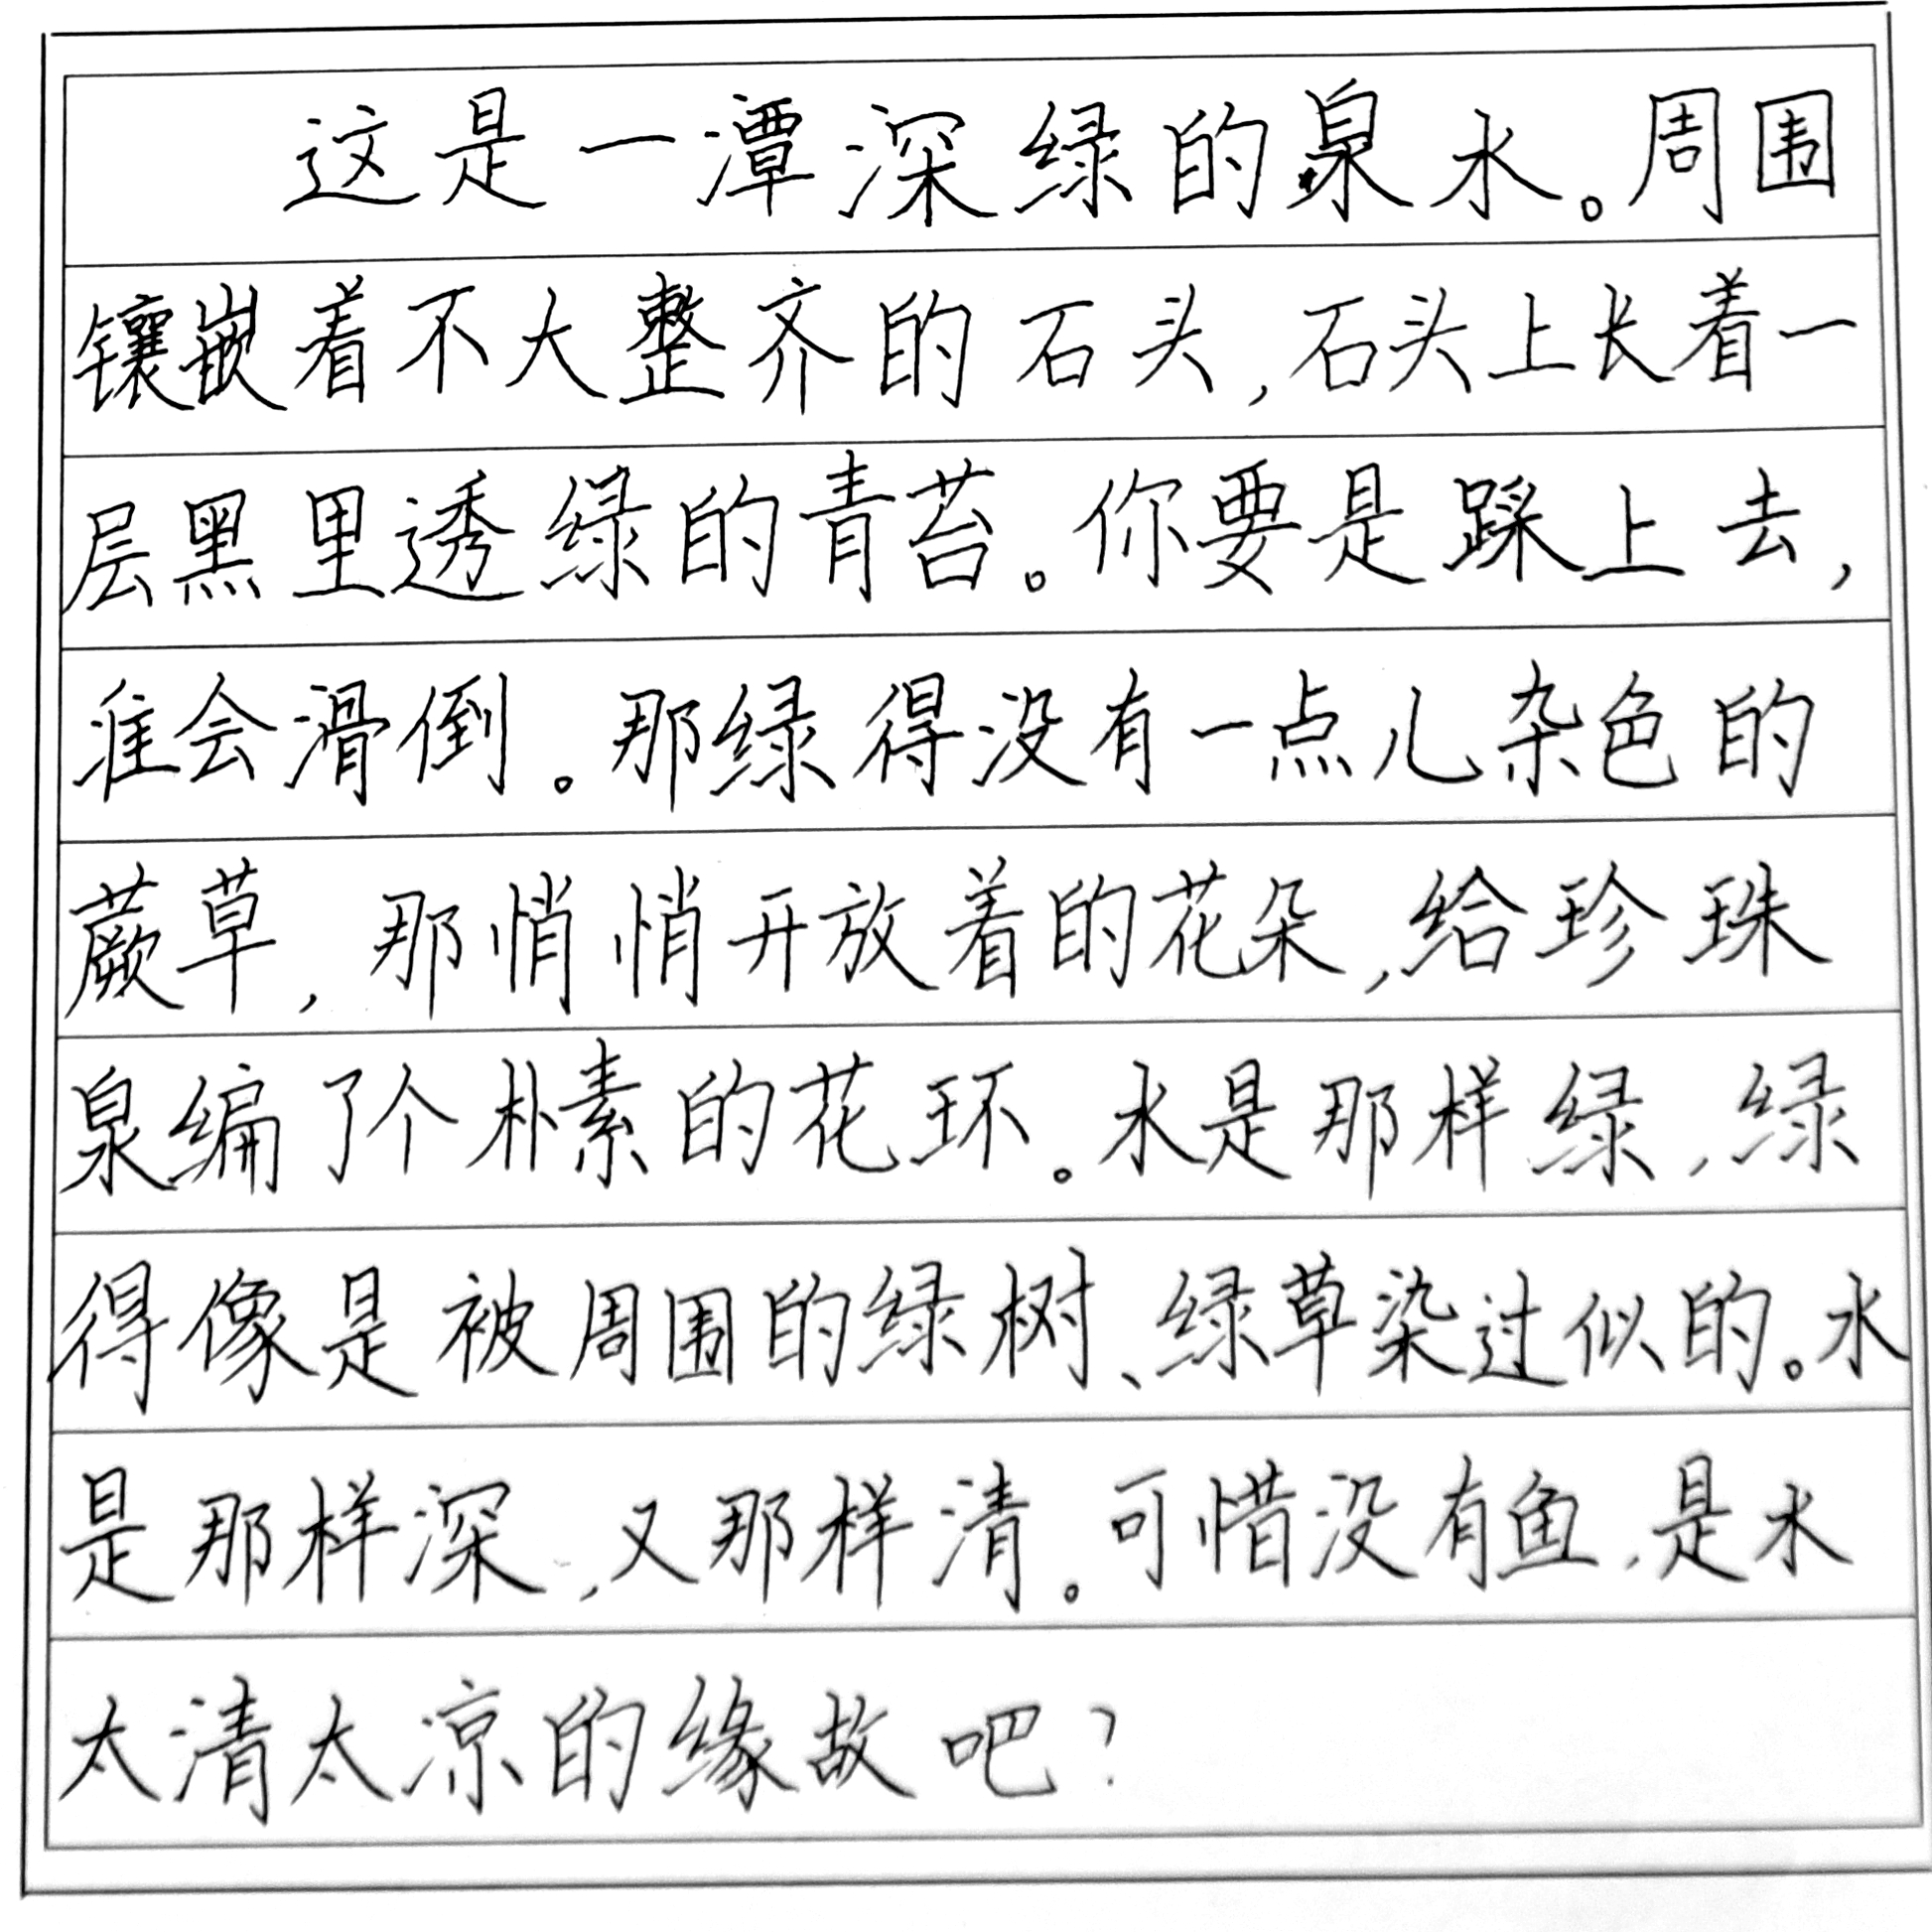 这是一潭深绿的泉水。周围
镶嵌着不大整齐的石头,石头上长着一
层黑里透绿的青苔。你要是踩上去,
准会滑倒。那绿得没有一点儿杂色的
蕨草,那悄悄开放着的花朵,给珍珠
泉编了个朴素的花环。水是那样绿,绿
得像是被周围的绿树、绿草染过似的。水
是那样深,又那样清。可惜没有鱼,是水
太清太凉的缘故吧?